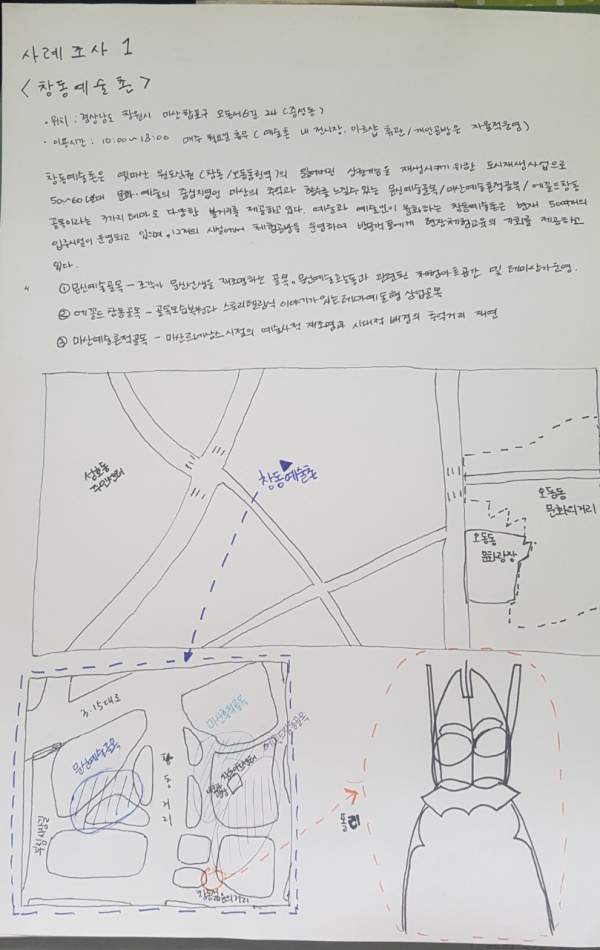 사례조사 1
<창동예술촌>
· 위치 : 경상남도 창원시 마산합포구 오동서6길 24 (중성동)
· 이용시간 : 10:00~18:00 매주 월요일 휴무 (예술촌 내 전시장, 아트샵 휴관/개인공방은 자율적운영)
창동예술촌은 옛마산 원도심권 (창동/오동동권역)의 상권개념을 재생시키기 위한 도시재생사업으로
50~60년대 문화·예술의 중심지였던 마산의 추억과 향수를 느낄수 있는 문신예술골목/마산예술흔적골목/에꼴드창동
골목이라는 3가지 테마로 다양한 볼거리를 제공하고 있다. 예술과 예술인이 융화하는 창동예술촌은 현재 50여개의
입주시설이 운영되고 있으며, 12개의 시설에서 체험공방을 운영하며 방문객들에게 현장체험교육의 기회를 제공하고
있다.
① 문신예술골목 - 조각가 문신선생을 재조명하는 골목. 문신예술활동과 관련된 체험아트공간 및 테마상가운영.
② 에꼴드 창동골목 - 골목모습복원과 스토리텔링식 이야기가 있는 테마예술형 상업골목
③ 마산예술흔적골목 - 마산르네상스 시절의 예술사적 재조명과 시대적 배경의 추억거리 재연
성호동
주민센터
창동예술촌
오동동
문화의거리
오동동
문화광장
3·15대로
마산흔적골목
문신예술골목
창동거리
에꼴드창동골목
부림시장길
창동
거리
폴리